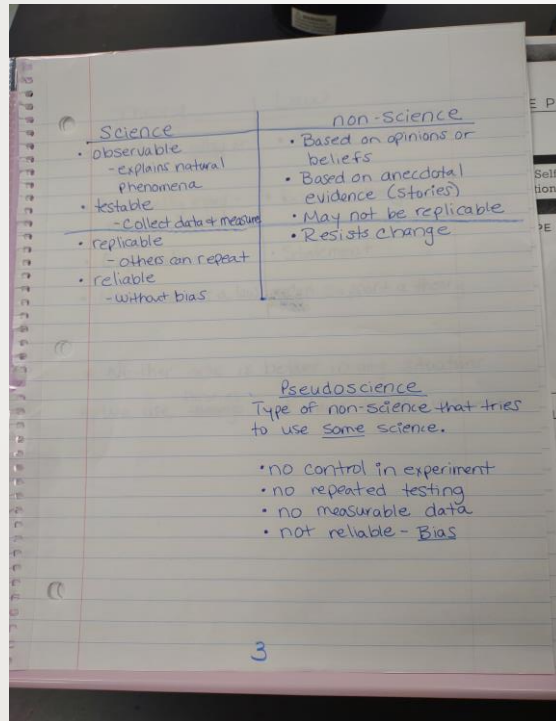 Science
• observable
-explains natural
phenomena
• testable
-Collect data & measure
• replicable
-others can repeat
• reliable
-without bias
non-science
• Based on opinions or
beliefs
• Based on anecdotal
evidence (stories)
• May not be replicable
• Resists change
Pseudoscience
Type of non-science that tries
to use some science.
• no control in experiment
• no repeated testing
• no measurable data
• not reliable - Bias
3
E P
Self
tion
PE